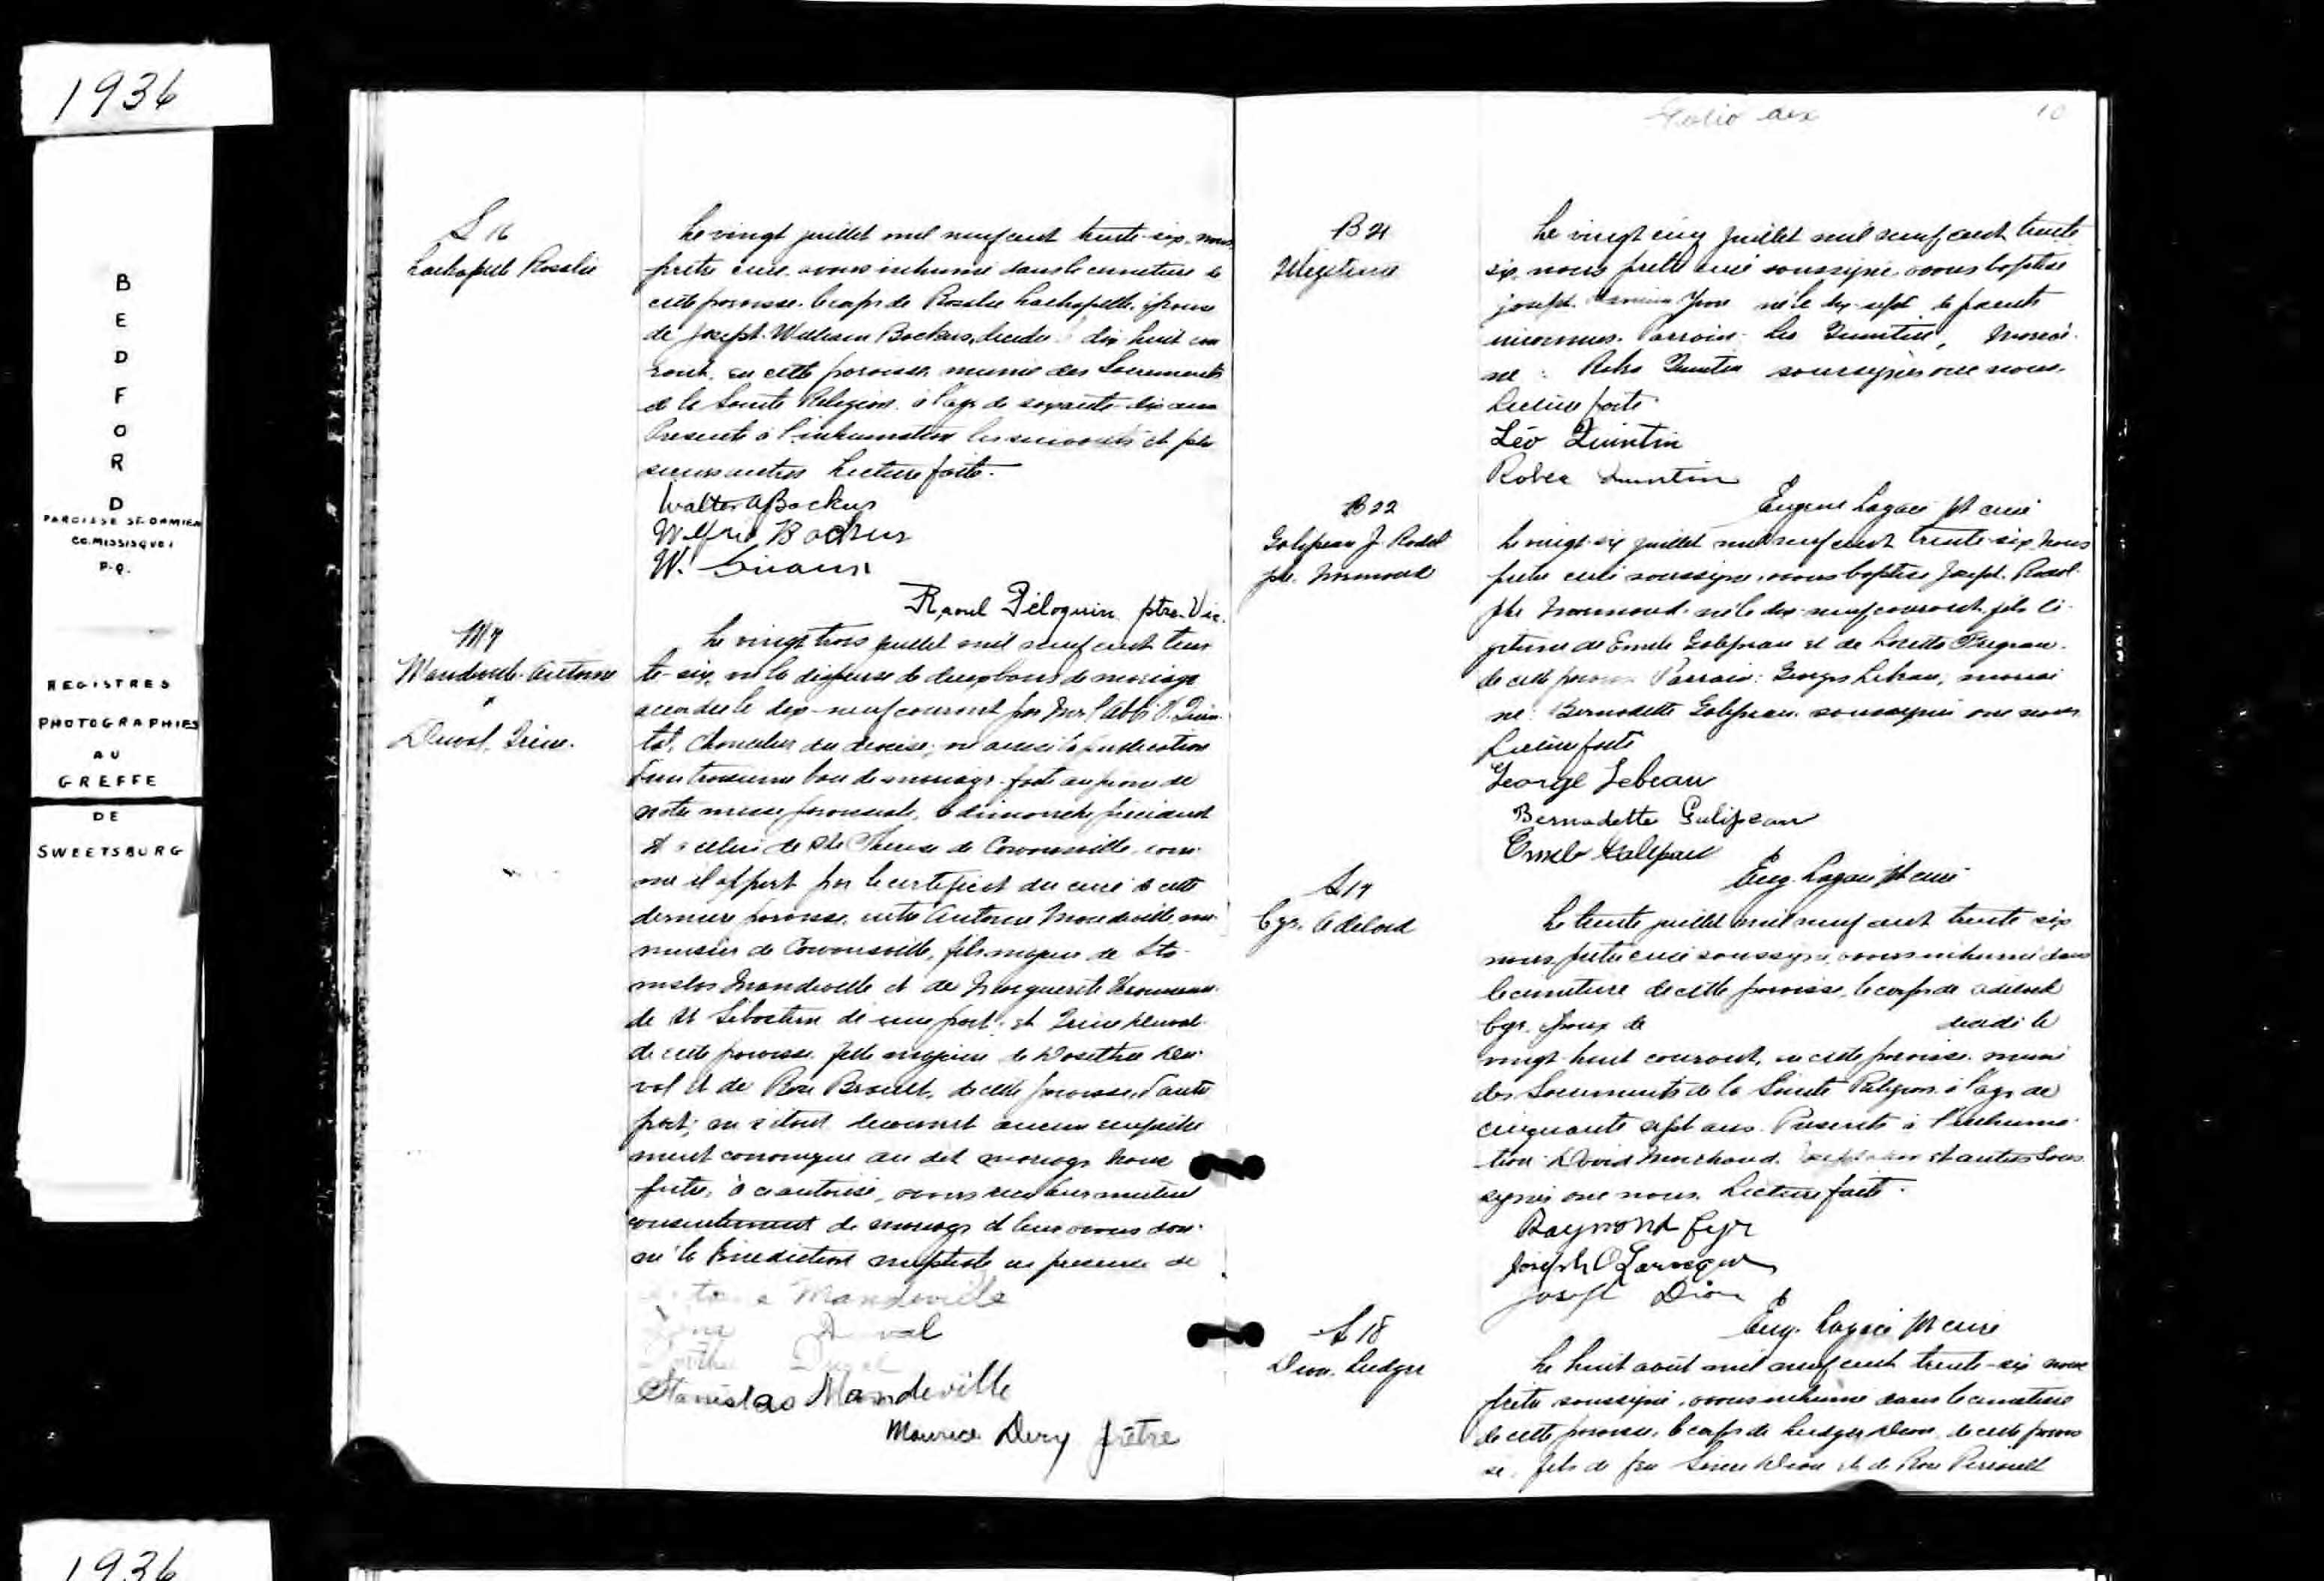 1936
BEDFORD
PAROISSE ST-DAMIEN
CO. MISSISQUOI
P.Q.
REGISTRES
PHOTOGRAPHIES
AU
GREFFE
DE
SWEETSBURG
S 16
Lachapelle Rosalie
Le vingt juillet mil neuf cent trente-six, nous
prêtre curé, avons inhumé dans le cimetière de
cette paroisse, le corps de Rosalie Lachapelle, épouse
de Joseph-William Backus, décédée dix huit cou
rant, en cette paroisse, munie des Sacrements
de la Sainte Religion, à l'âge de soixante-dix ans
Présents à l'inhumation les suivants et plu
sieurs autres Lecture faite.
Walter A Backus
Wilfrid Backus
W.
Raoul Péloquin ptre-Vic.
M 7
Mandeville Antoine
x
Duval, Irène.
Le vingt trois juillet mil neuf cent tren
te-six, vu la dispense de deux bans de mariage
accordée le dix-neuf courant par Mr l'abbé
chancelier du diocèse; vu aussi la publication
d'un troisième ban de mariage faite au prône de
notre messe paroissiale, le dimanche précédent
et à celui de Ste Thérèse de Cowansville, com
me il appert par le certificat du curé de cette
dernière paroisse, entre Antoine Mandeville, me
nuisier de Cowansville, fils majeur de Sta-
nislas Mandeville et de Marguerite
de St Sébastien de une part, et Irène Duval
de cette paroisse, fille majeure de Dosithée Du-
val et de Rose Brault, de cette paroisse, d'autre
part; ne s'étant découvert aucun empêche
ment canonique au dit mariage Nous
prêtre, à ce autorisé, avons reçu leur mutuel
consentement de mariage et leur avons don-
né la bénédiction nuptiale en présence de
Mandeville
Duval
Stanislas Mandeville
Maurice Dery prêtre
Folio dix
10
B 21
Illégitime
Le vingt cinq juillet mil neuf cent trente
six, nous prêtre curé soussigné, avons baptisé
Joseph Yvon né le dix-sept de parents
inconnus. Parrain: Léo Quintin, marrai
ne: Quintin soussignés avec nous.
Lecture faite.
Léo Quintin
Quintin
Eugène Lagacé ptre curé
B 22
Galipeau J. Rodol
phe Normand
Le vingt-six juillet mil neuf cent trente-six, nous
prêtre curé soussigné, avons baptisé Joseph Rodol-
phe Normand, né le dix-neuf courant, fils lé-
gitime de Emile Galipeau et de Loretta
de cette paroisse Parrain: Georges Lebeau, marrai
ne: Bernadette Galipeau soussignés avec nous
Lecture faite
George Lebeau
Bernadette Galipeau
Emile Galipeau
Eug. Lagacé ptre curé
S 17
Cyr, Adelard
Le trente juillet mil neuf cent trente six
nous prêtre curé soussigné, avons inhumé dans
le cimetière de cette paroisse, le corps de Adélard
Cyr, époux de décédé le
vingt-huit courant, en cette paroisse, muni
des Sacrements de la Sainte Religion à l'âge de
cinquante sept ans. Présents à l'inhuma-
tion: David Marchand, et autres sous
signés avec nous. Lecture faite.
Raymond Cyr
Joseph O Larocque
Joseph Dion
Eug. Lagacé ptre curé
S 18
Dion, Ludger
Le huit août mil neuf cent trente-six nous
prêtre soussigné, avons inhumé dans le cimetière
de cette paroisse, le corps de Ludger Dion, de cette parois
se, fils de feu Dion et de Rose
1936